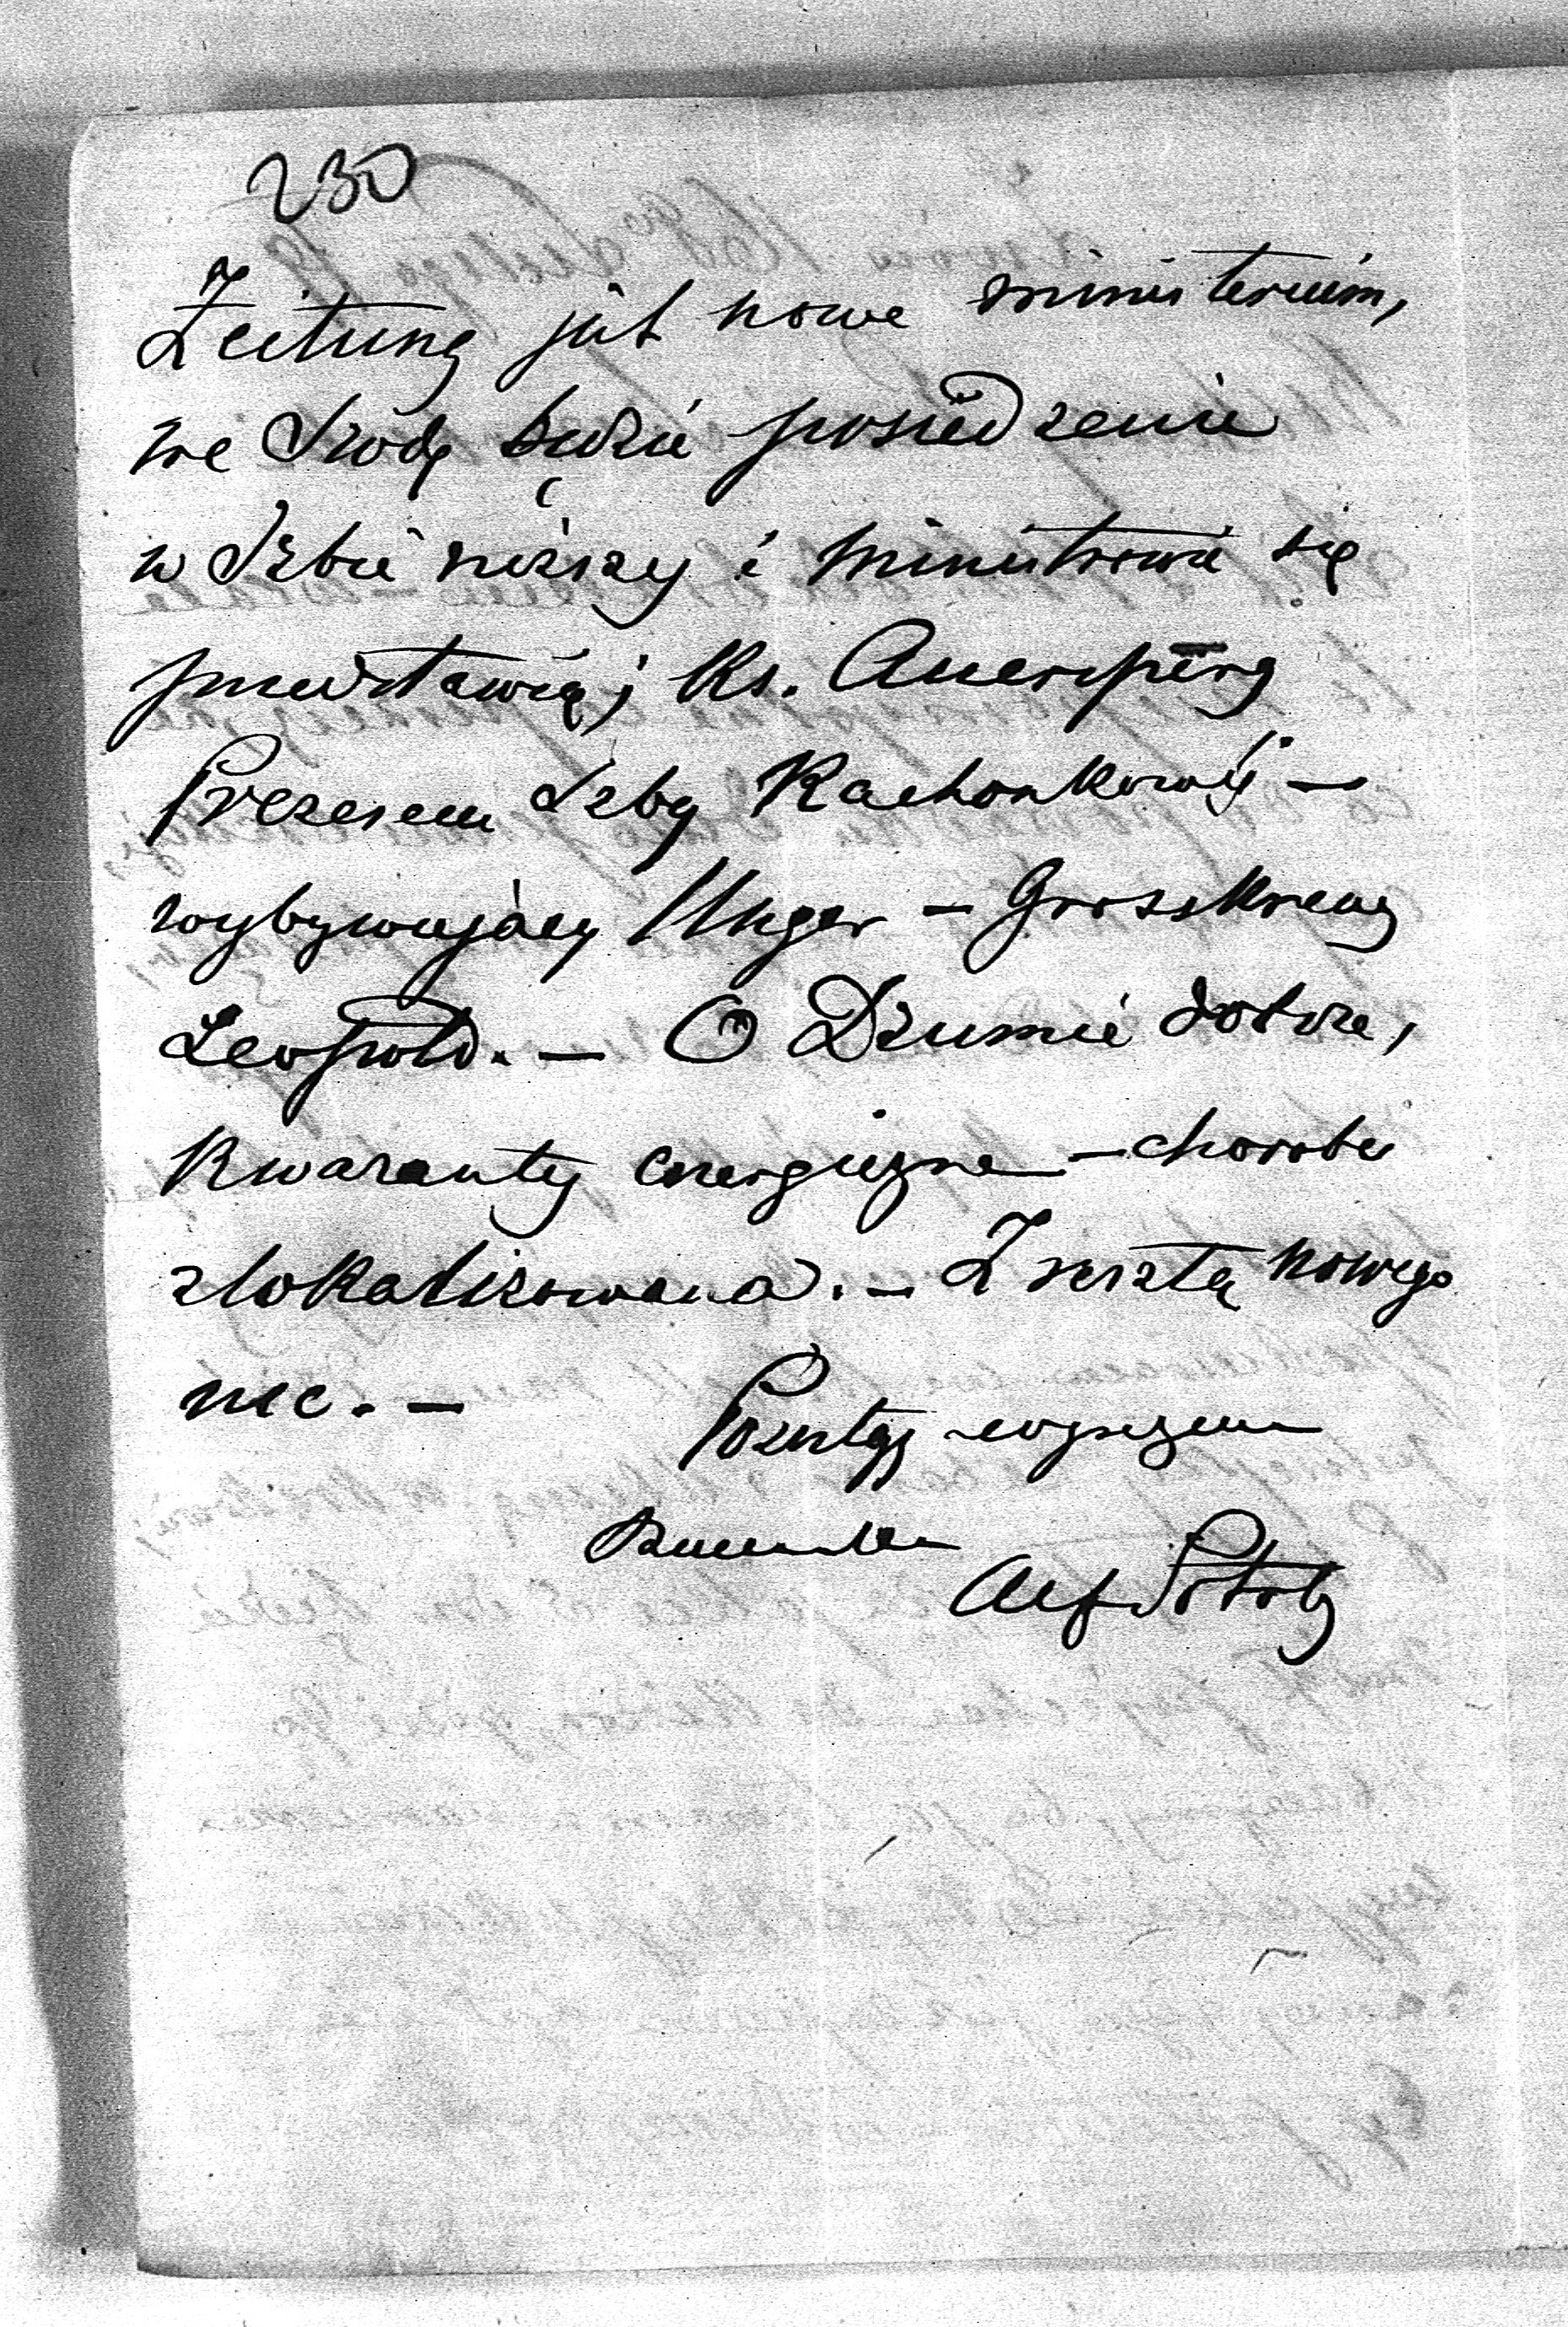 230
Zeitung już nowe ministerium,
we Środę będzie posiedzenie
w Izbie niższy i ministrowie się
przedstawią; Ks. Auersperg
Prezesem Izby Rachonkowéj —
wybywający Unger — Grosskreuz
Leopold. — O Dżumie dobrze,
Kwaranty energiczne — choroba
zlokalizowana. — Zresztą nowego
nic. —
Alf Potocki